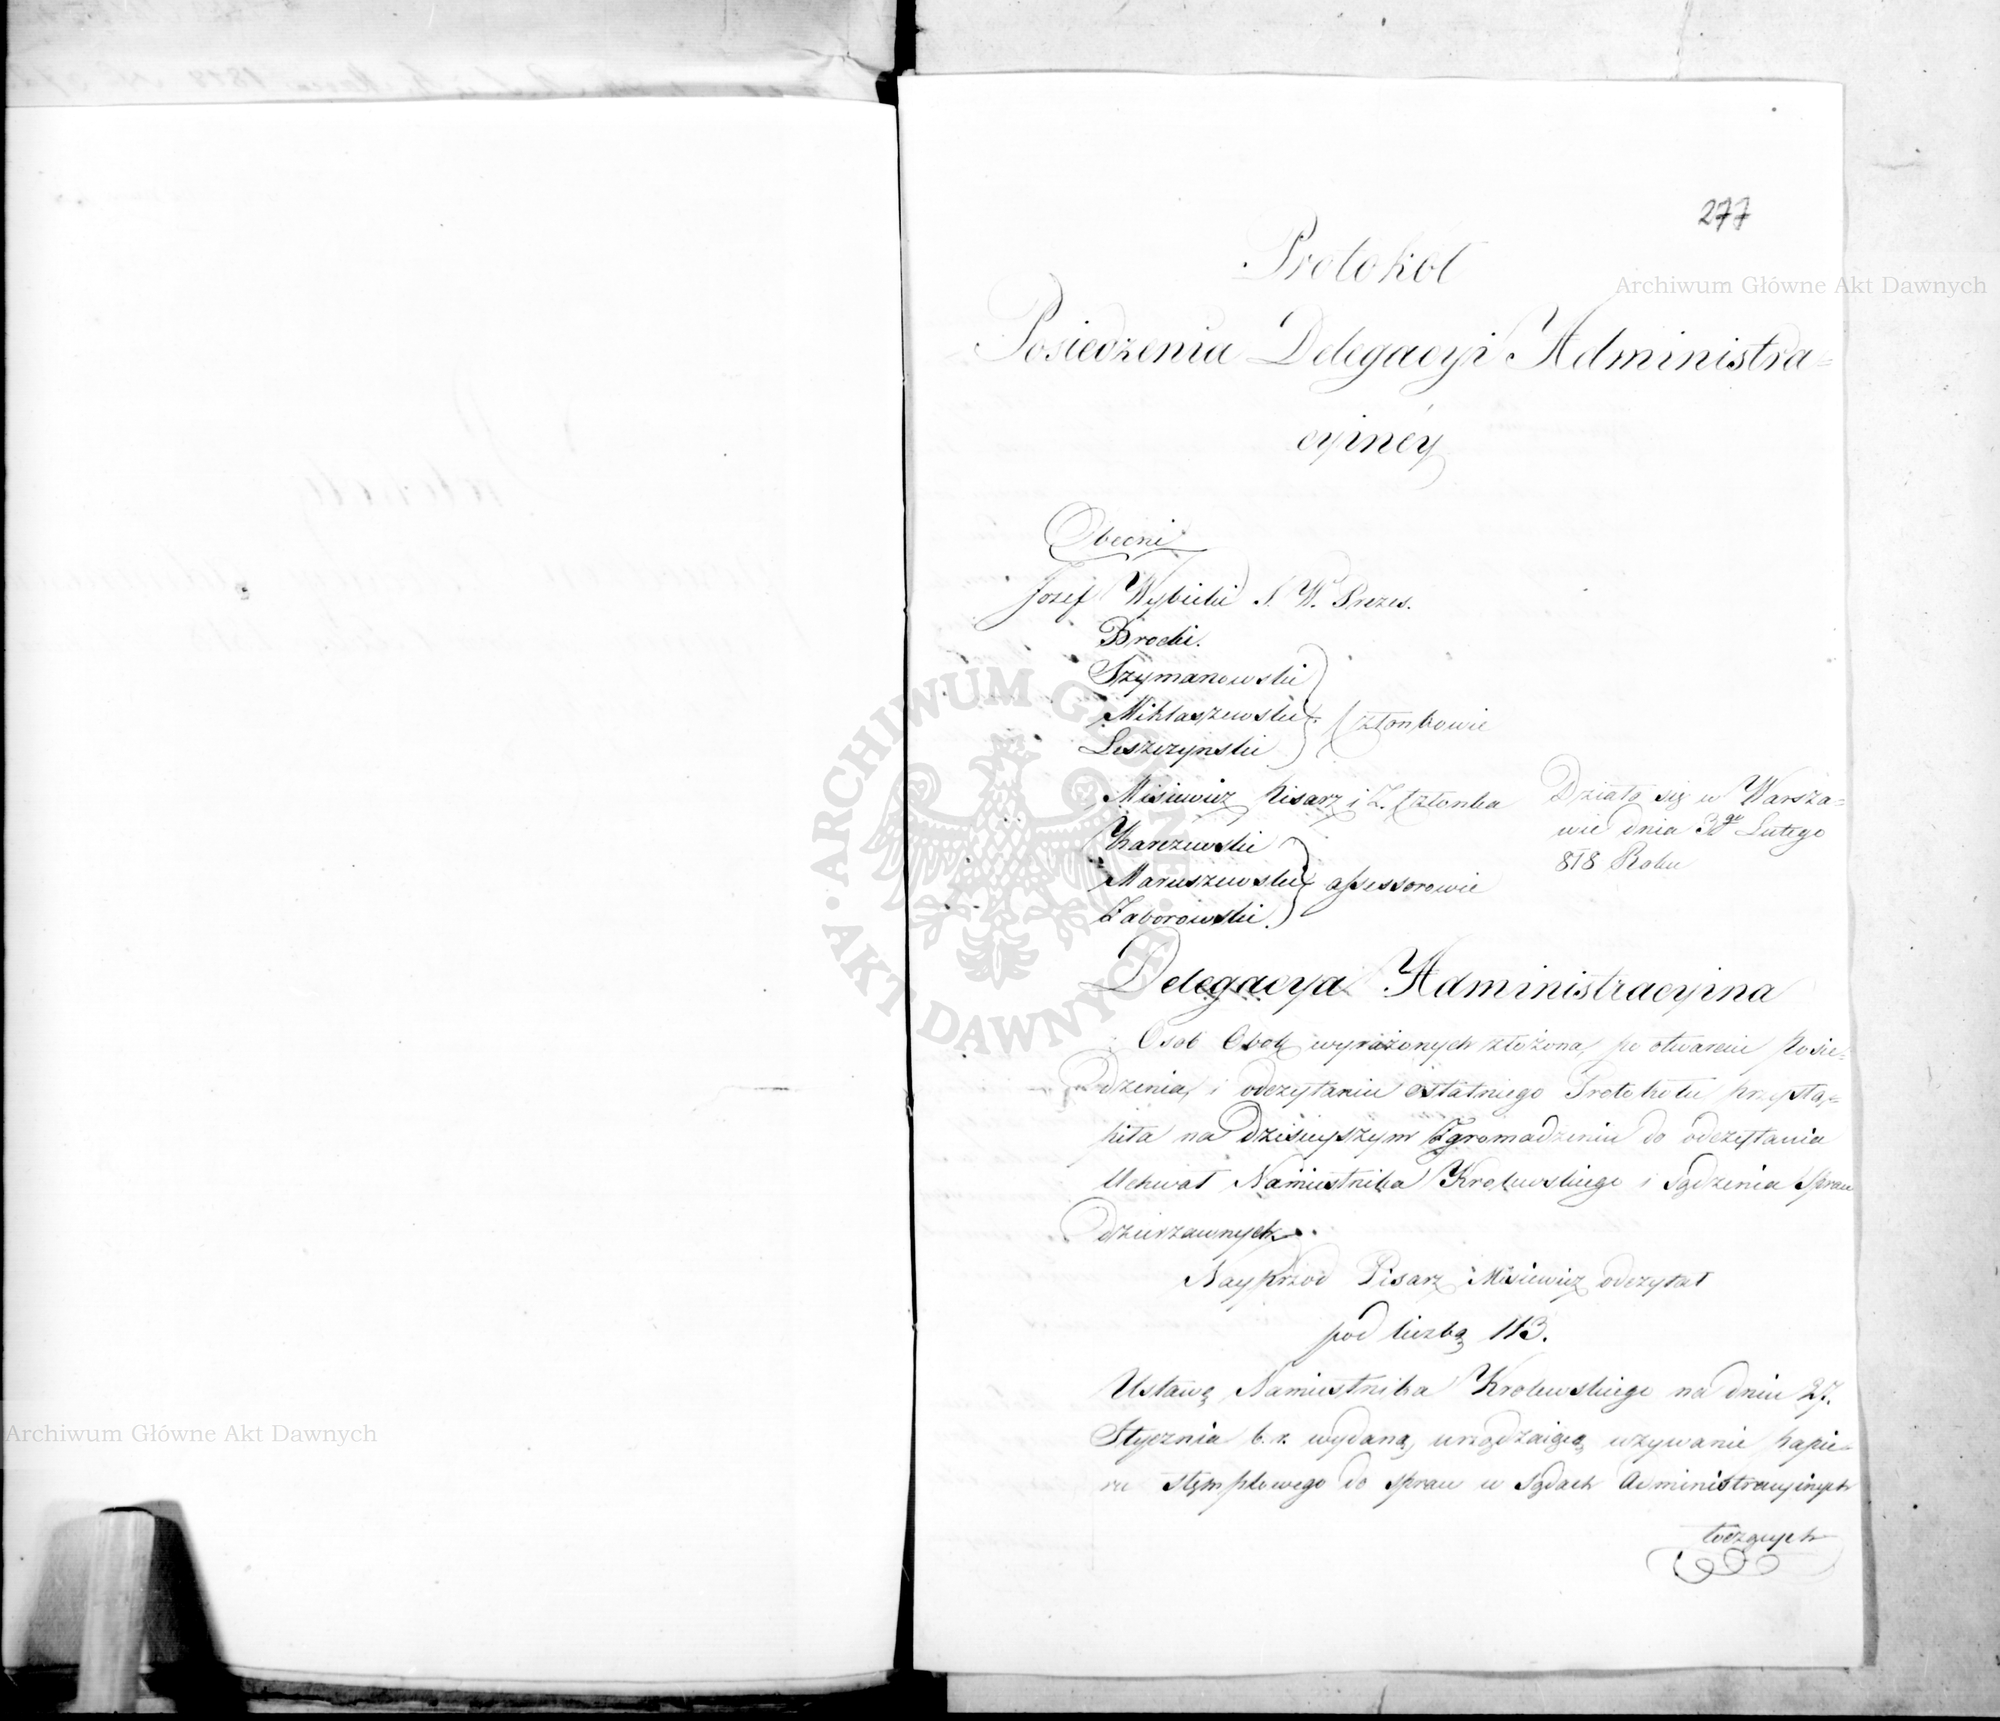 277
Protokół
Posiedzenia Delegacyi Administra=
cyiney
Obecni
Jozef Wybicki S. W. Prezes.
Brocki.
Szymanowski
Miklaszewski
Leszczynski
Członkowie
Misiewicz Pisarz i Z. Członka
Karczewski
Maruszewski
Zaborowski.
assessorowie
Działo się w Warsza=
wie dnia 3go Lutego
818 Roku
Delegacya Administracyina
Osob Obok wyrażonych złożona, po otwarciu Posie=
dzenia, i odczytaniu ostatniego Protokołu przystą=
piła na dzisieyszym Zgromadzeniu do odczytania
Uchwał Namiestnika Krolewskiego i sądzenia spraw
dzierzawnych.
Nayprzod Pisarz Misiewicz odczytał
pod liczbą 113.
Ustawę Namiestnika Krolewskiego na dniu 27.
Stycznia b. r. wydaną, urządzaiącą używanie papie=
ru stęmplowego do spraw w Sądach Administracyinych
toczących
Archiwum Główne Akt Dawnych
Archiwum Główne Akt Dawnych
ARCHIWUM GŁÓWNE AKT DAWNYCH